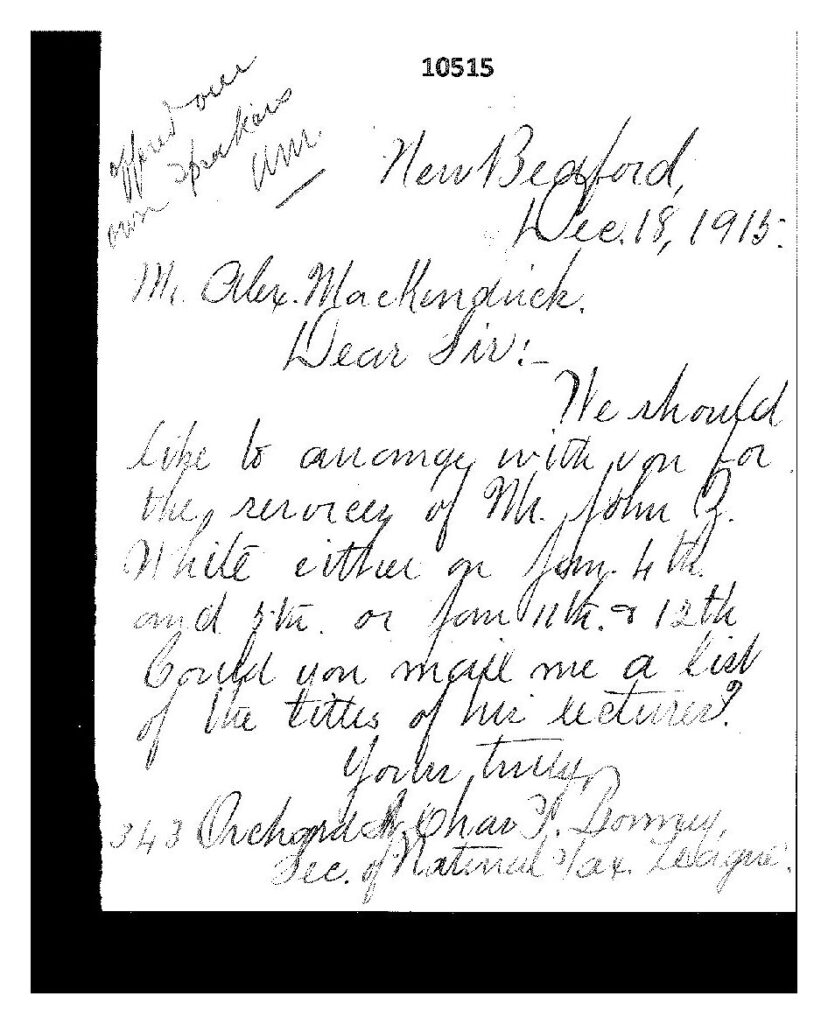 10515
offered over
own speakers
New Bedford,
Dec. 18, 1915.
Mr. Alex. MacKendrick.
Dear Sir:-
We should
like to arrange with you for
the services of Mr. John Z.
White either on Jan. 4th.
and 5th. or Jan 11th. & 12th
Could you mail me a list
of the titles of his lectures?
Yours truly,
343 Orchard St. Chas F.
Sec. of Natural Tax. League.